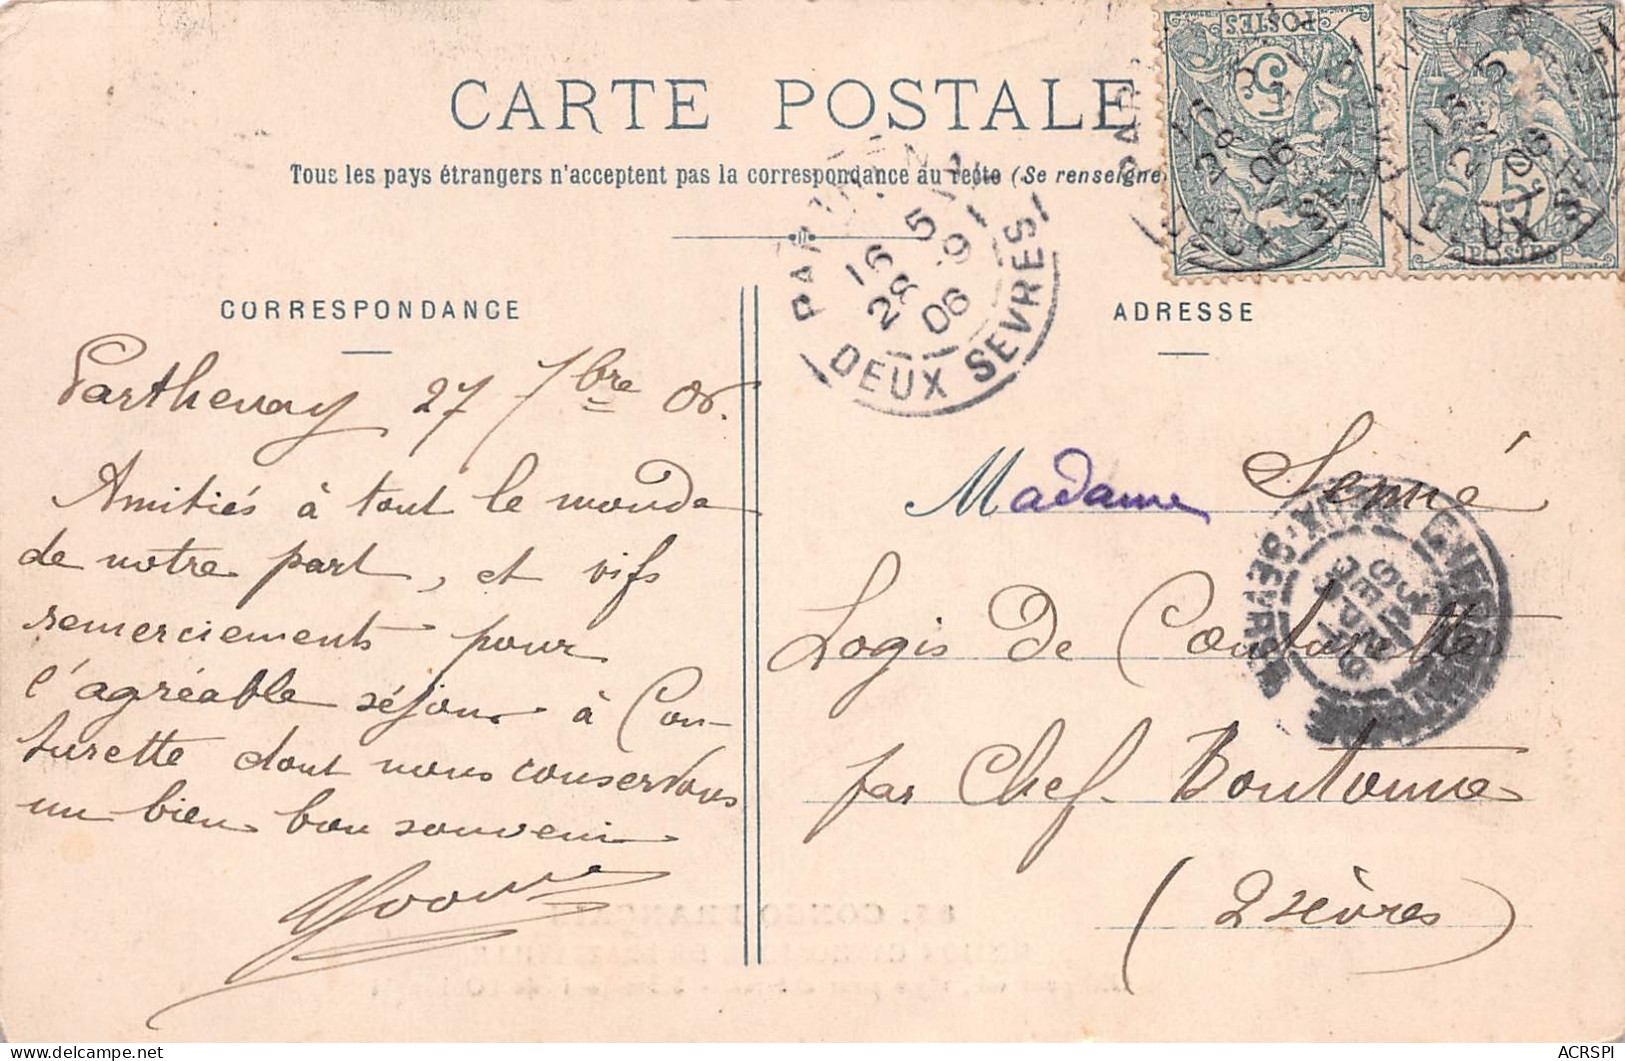 CARTE POSTALE
Tous les pays étrangers n'acceptent pas la correspondance au recto (Se renseigne
CORRESPONDANCE
Parthenay 27 7bre 06.
Amitiés à tout le monde
de notre part, et vifs
remerciements pour
l'agréable séjour à Cou-
turette dont nous conservons
un bien bon souvenir
Yvonne
ADRESSE
Madame Semé
Logis de Couturette
par Chef-Boutonne
(2 Sèvres)
POSTES
5
POSTES
5
PARTHENAY
16 5
28 -9
06
DEUX SEVRES
85. CONGO FRANÇAIS
ACRSPI